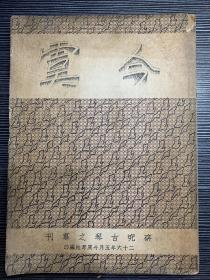 今虞
研究古琴之專刊
二十六年五月今虞琴社編印